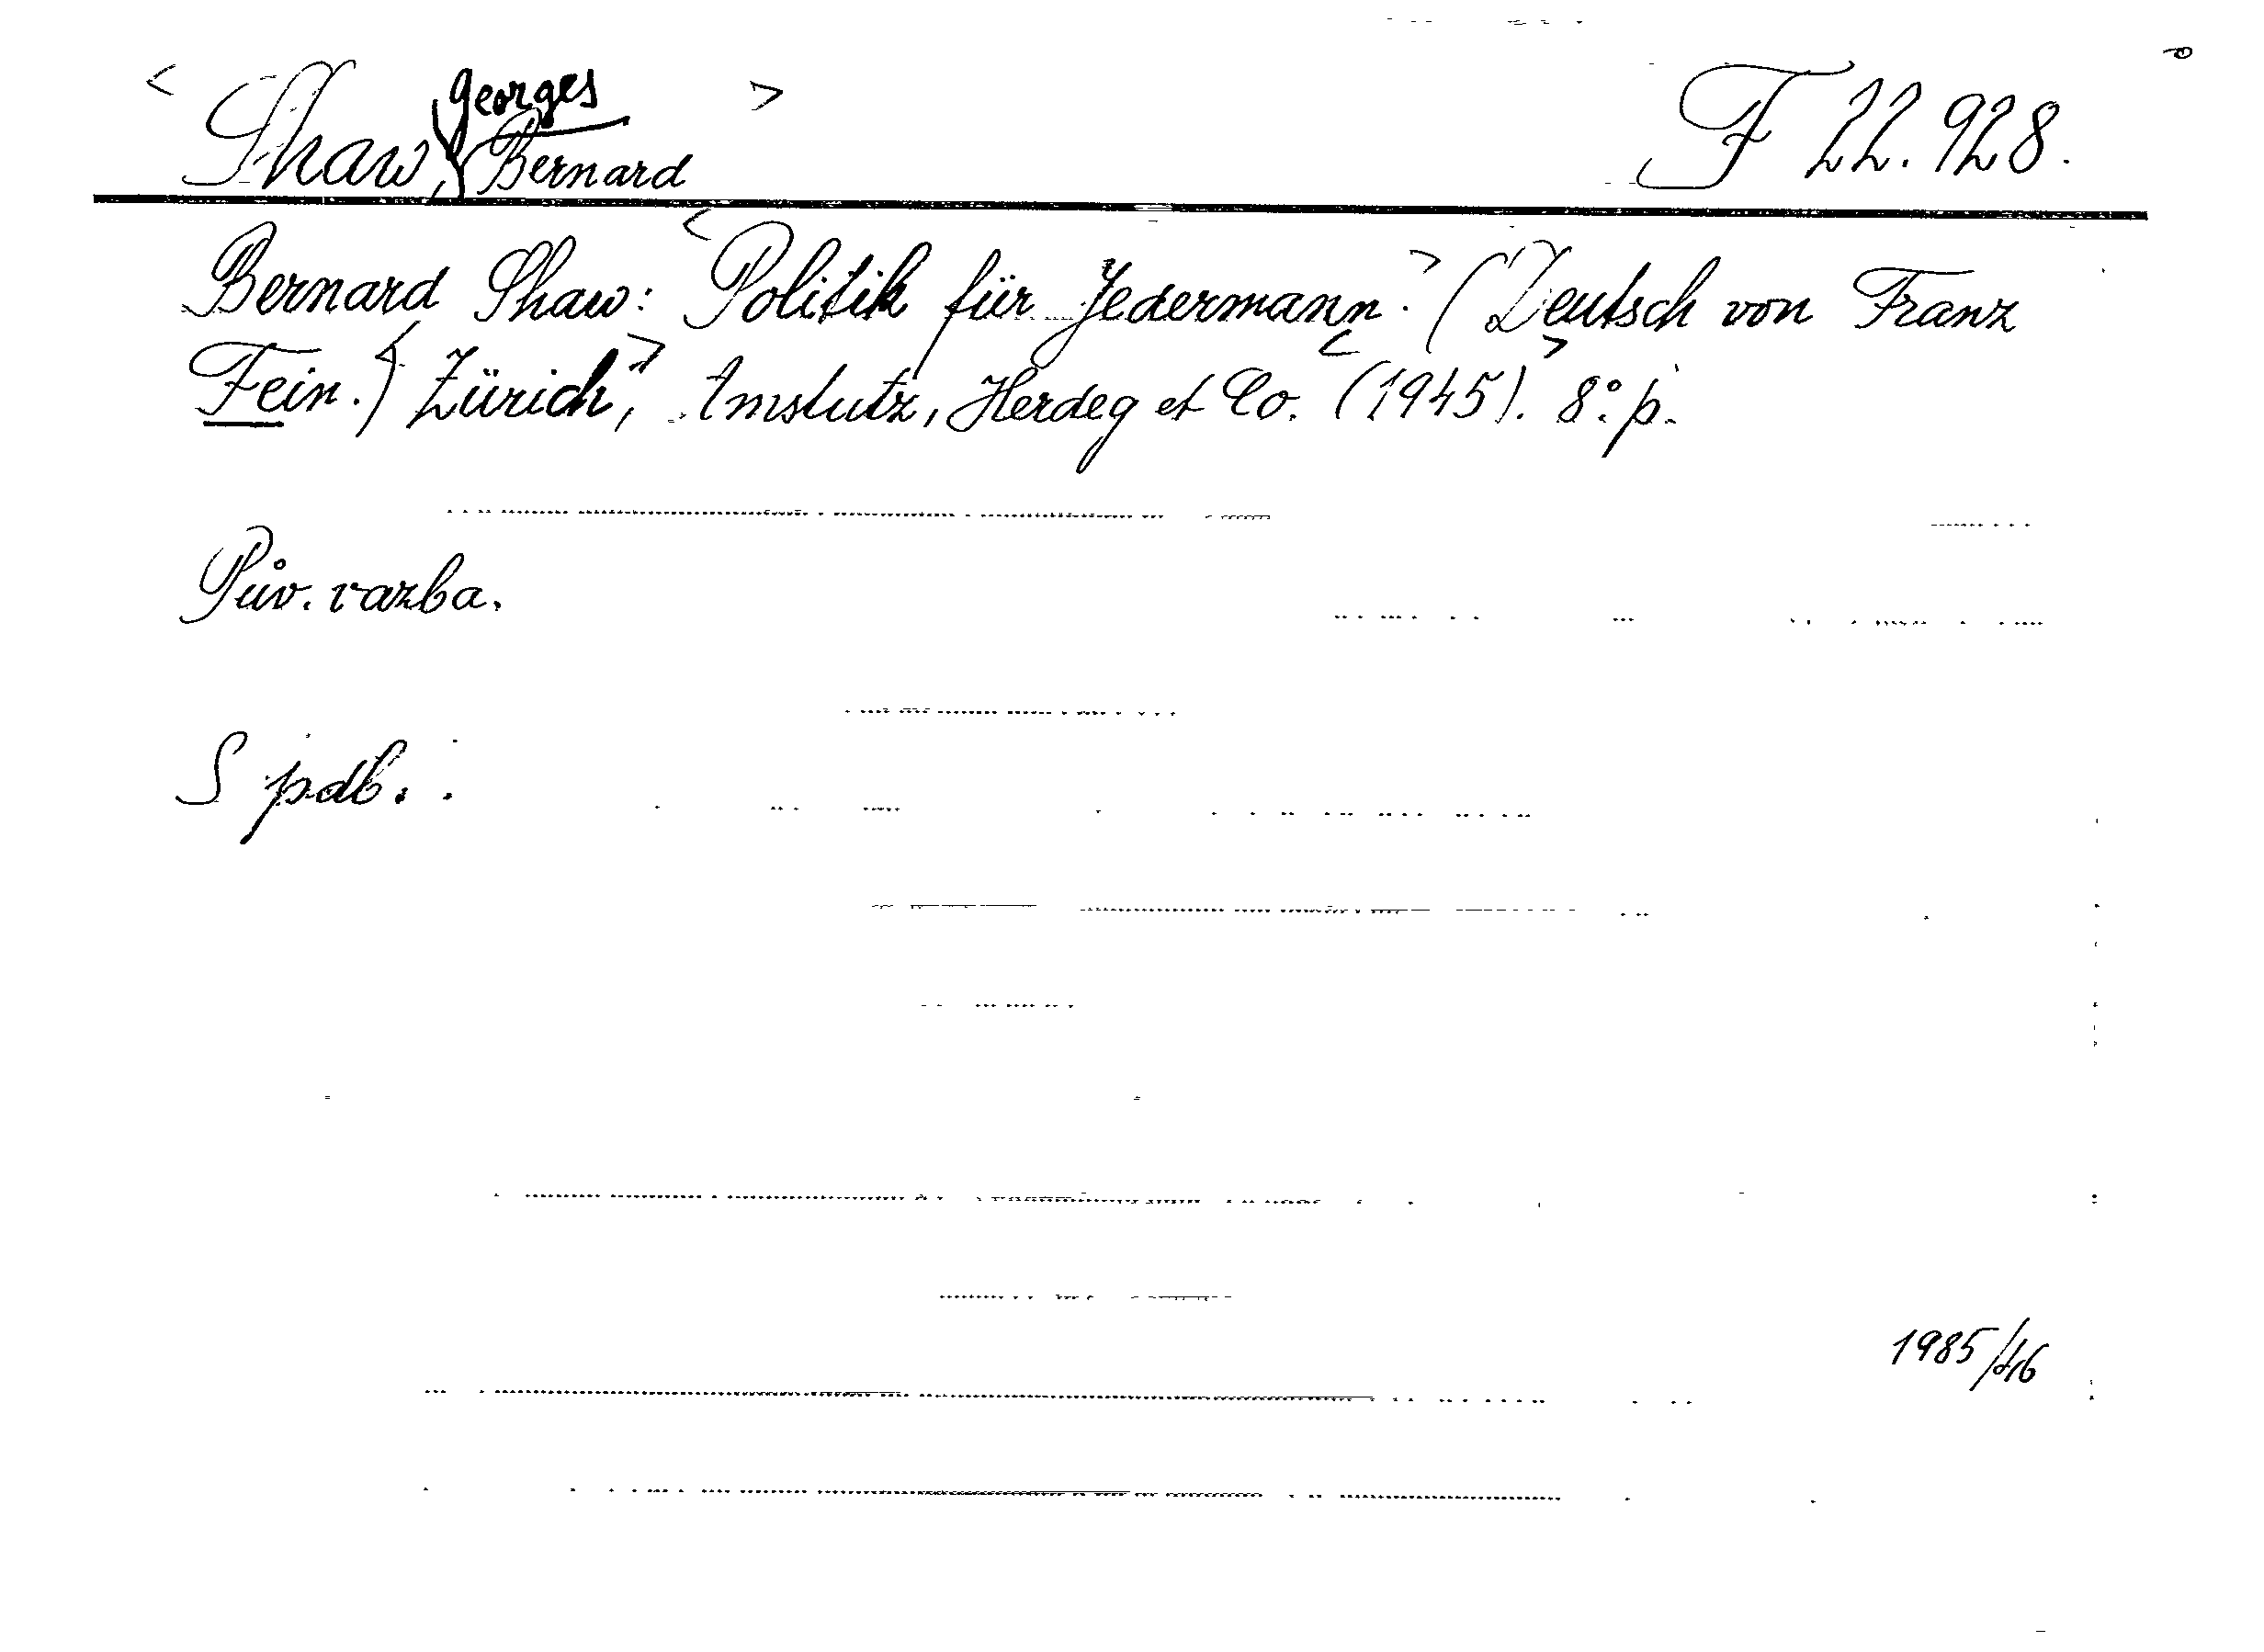 < Shaw, Georges Bernard > F 22.928.
Bernard Shaw: <Politik für Jedermann.> (Deutsch von Franz
Fein.) <Zürich,> Amstutz, Herdeg et Co. <(1945).> 8°. p.
Pův. vazba.
S pdb.
1985/46